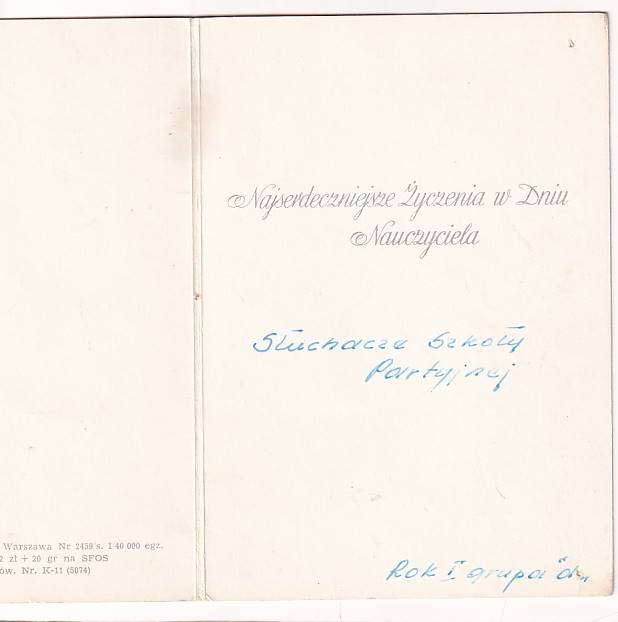 Najserdeczniejsze Życzenia w Dniu
Nauczyciela
Słuchacze Szkoły
Partyjnej
Rok I grupa "d"
Warszawa Nr 2459/s. I/40 000 egz.
2 zł + 20 gr na SFOS
ów. Nr. K-11 (5074)